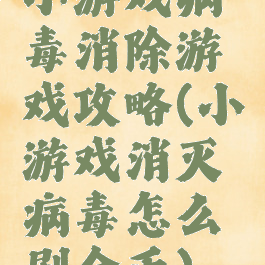 小游戏病
毒消除游
戏攻略(小
游戏消灭
病毒怎么
刷金币)